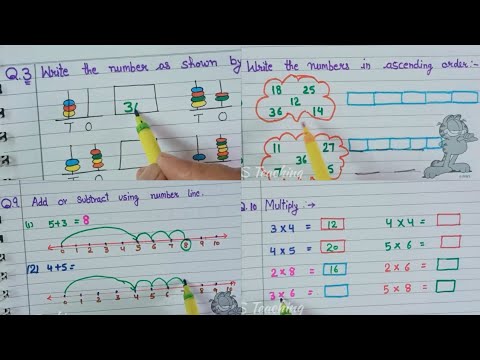 Q.3 Write the number as shown by
36
T O
T O
Write the numbers in ascending order:-
18 25
12
36 14
11 27
36
5
S Teaching
Q.9 Add or subtract using number line.
(i) 5+3 = 8
0 1 2 3 4 5 6 7 8 9 10
(2) 4+5=
0 1 2 3 4 5 6 7 8 9 10
Q.10 Multiply :→
3×4 = 12 4×4 =
4×5 = 20 5×6 =
2×8 = 16 2×6 =
3×6 = 5×8 =
S Teaching